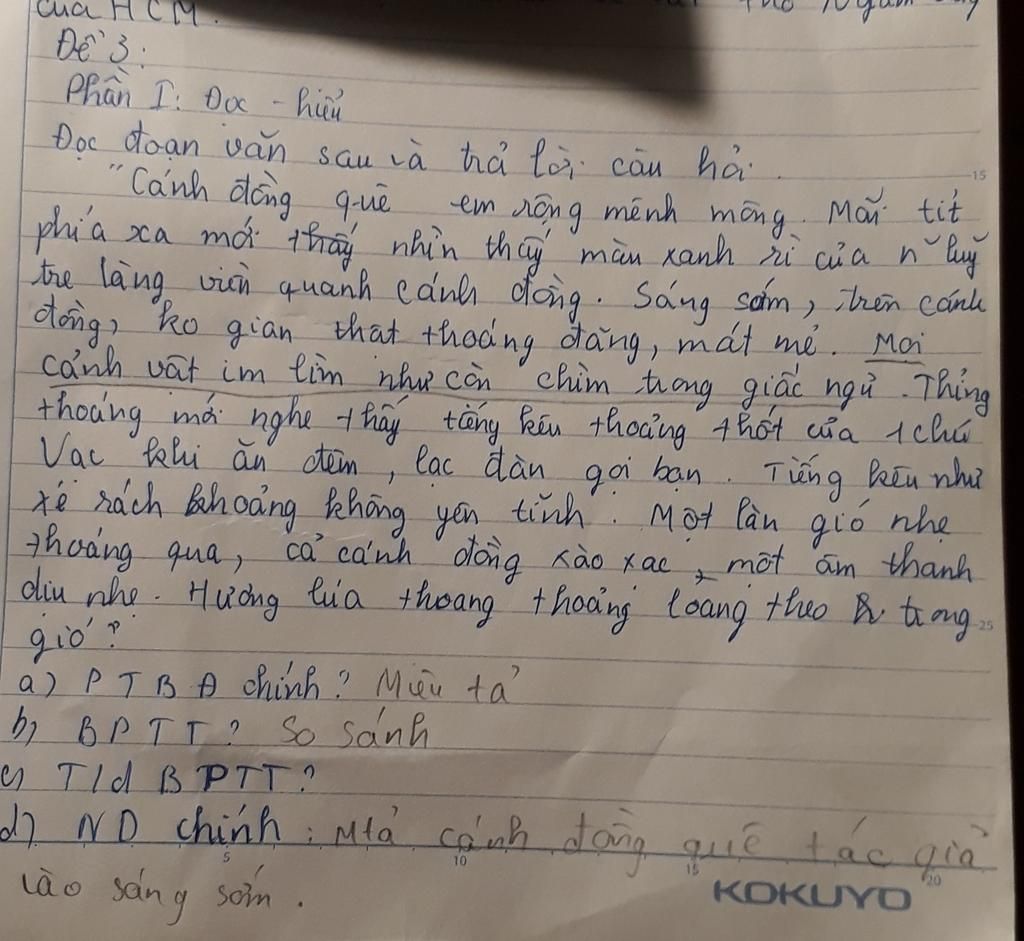 của HCM.
Đề 3:
Phần I: Đọc - hiểu
Đọc đoạn văn sau và trả lời câu hỏi.
15
"Cánh đồng quê em rộng mênh mông. Mãi tít
phía xa mới thấy nhìn thấy màu xanh rì của n~ luỹ
tre làng viền quanh cánh đồng. Sáng sớm, trên cánh
đồng, ko gian thật thoáng đãng, mát mẻ. Mọi
cảnh vật im lìm như còn chìm trong giấc ngủ. Thỉng
thoảng mới nghe thấy tiếng kêu thoảng thốt của 1 chú
Vạc khi ăn đêm, lạc đàn gọi bạn. Tiếng kêu như
xé rách khoảng không yên tĩnh. Một làn gió nhẹ
thoáng qua, cả cánh đồng xào xạc, một âm thanh
dịu nhẹ. Hương lúa thoang thoảng loang theo trong
25
gió?
a) PTBĐ chính? Miêu tả
b) BPTT? So sánh
c) T/d BPTT?
d) ND chính: Mtả cánh đồng quê tác giả
5 10 15 20
vào sáng sớm.
KOKUYO